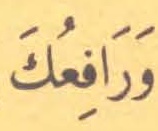 وَرَافِعُكَ